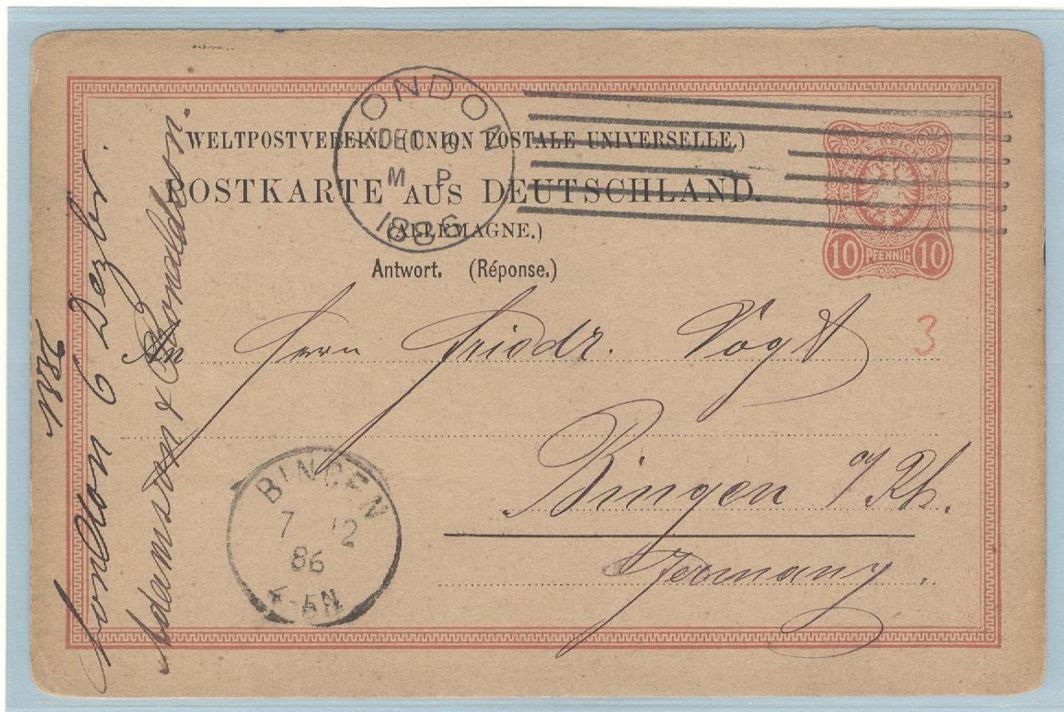 WELTPOSTVEREIN. (UNION POSTALE UNIVERSELLE.)
POSTKARTE AUS DEUTSCHLAND.
(ALLEMAGNE.)
Antwort. (Réponse.)
LONDON
DEC 6
M P
1886
REICHS
10 PFENNIG 10
3
An Herrn Friedr. Vogt
Bingen a/Rh.
Germany.
BINGEN
7 12
86
London 6 Dezbr.
1886
Adamson &